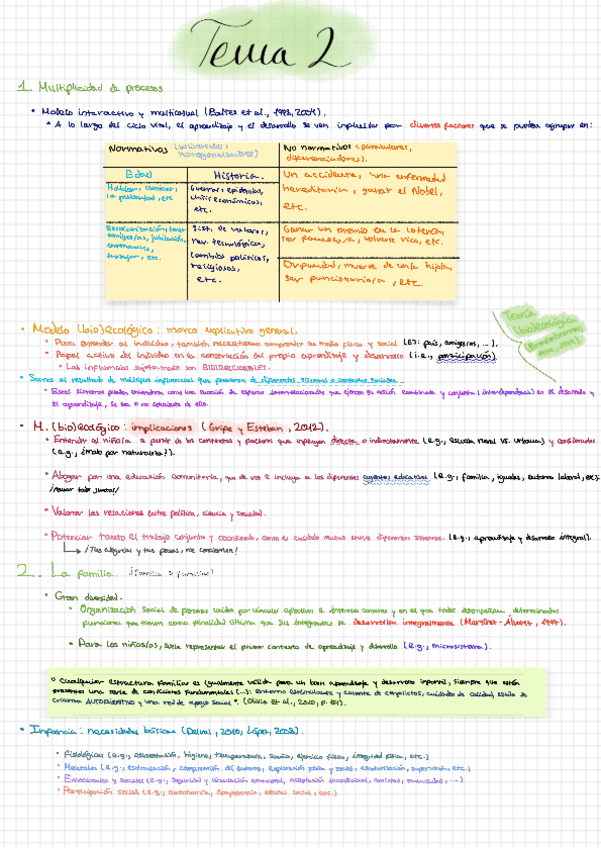 Tema 2
1. Multiplicidad de procesos
• Modelo interactivo y multicausal (Baltes et al., 1998, 2004).
• A lo largo del ciclo vital, el aprendizaje y el desarrollo se ven implicados por diversos factores que se pueden agrupar en:
Normativos (universales, homogeneizadores)
No normativos (particulares, diferenciadores).
Edad
Historia
Hablar, caminar, la pubertad, etc
Guerras, epidemias, crisis económicas, etc.
Un accidente, una enfermedad hereditaria, ganar el Nobel, etc.
Escolarización, tener amigos/as, jubilación, trabajar, etc.
Sist. de valores, rev. tecnológica, cambios políticos, religiosos, etc.
Ganar un premio en la lotería, ser famoso/a, volverse rico, etc.
Orfandad, muerte de un/a hijo/a, ser funcionario/a, etc.
• Modelo (bio)ecológico: marco explicativo general.
• Para entender al individuo, también necesitamos comprender su medio físico y social (EJ: país, amigos/as, ...).
• Papel activo del individuo en la construcción del propio aprendizaje y desarrollo (i.e., participación)
• Las influencias sujeto-medio son BIDIRECCIONALES.
• Somos el resultado de múltiples influencias que provienen de diferentes sistemas o contextos sociales.
• Estos sistemas pueden entenderse como una sucesión de esferas interrelacionadas que ejercen su acción combinada y conjunta (interdependencia) en el desarrollo y
el aprendizaje, ya sea o no consciente de ello.
Teoría (bio)ecológica
• M. (bio)ecológico: implicaciones (Gripe y Esteban, 2012).
• Entender al niño/a a partir de los contextos y factores que influyen directa o indirectamente (e.g., escuela rural vs. urbana) y considerados
(e.g., ¿malo por naturaleza?).
• Abogar por una educación comunitaria, que dé voz e incluya a los diferentes agentes educativos (e.g., familia, iguales, entorno laboral, etc):
¡remar todos juntos!
• Valorar las relaciones entre política, ciencia y sociedad.
• Potenciar tanto el trabajo conjunto y coordinado, como el cuidado mutuo entre diferentes sistemas. (e.g., aprendizaje y desarrollo integral).
↳ ¡Tus alegrías y tus penas, me conciernen!
2. La familia
• Gran diversidad.
• Organización social de personas unidas por vínculos afectivos e intereses comunes y en el que todos desempeñan determinadas
funciones que tienen como finalidad última que sus integrantes se desarrollen integralmente (Martínez-Álvarez, 1997).
• Para los niños/as, suele representar el primer contexto de aprendizaje y desarrollo (e.g., microsistema).
"Cualquier estructura familiar es igualmente válida para un buen aprendizaje y desarrollo infantil, siempre que estén
presentes una serie de condiciones fundamentales (...): entorno estimulante y carente de conflictos, cuidados de calidad, estilo de
crianza AUTORITATIVO y una red de apoyo social". (Oliva et al., 2010, p. 151).
• Infancia: necesidades básicas (Delval, 2010, López, 2008).
• Fisiológicas (e.g., alimentación, higiene, temperatura, sueño, ejercicio físico, integridad física, etc.)
• Mentales (e.g., estimulación, comprensión del entorno, exploración física y social, escolarización, supervisión, etc.)
• Emocionales y sociales (e.g., seguridad y vinculación emocional, aceptación incondicional, caricias, ...)
• Participación social (e.g., autonomía, competencia, estatus social, etc.)